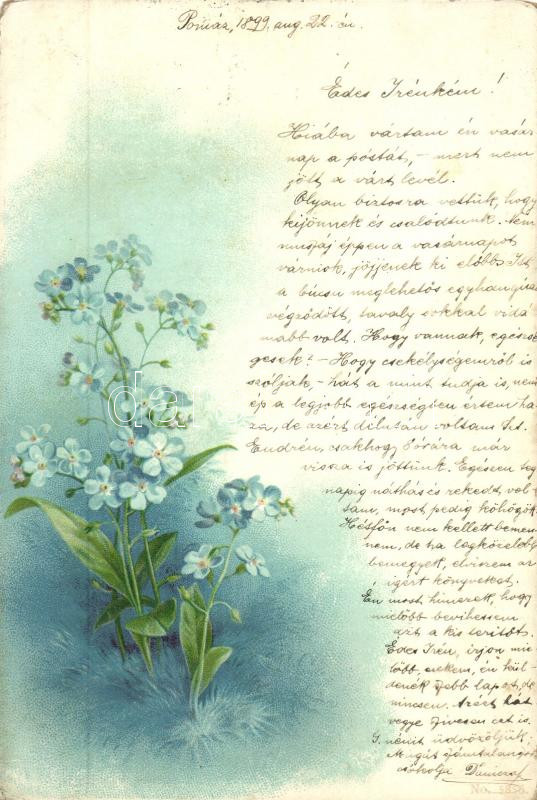 Pomáz, 1899. aug. 22. én.
Édes Irénkém!
Hiába vártam én vasár
nap a póstát, – mert nem
jött a várt levél.
Olyan biztosra vettük, hogy
kijönnek és csalódtunk. Nem
muszáj éppen a vasárnapot
várniok, jöjjenek ki előbb. Itt
a búcsu meglehetős egyhangúan
végződött, tavaly sokkal vidá
mabb volt. Hogy vannak, egészsé
gesek? – Hogy csekélységemről is
szóljak, – hát a mint tudja is, nem
ép a legjobb egészségben értem ha
za, de azért délután voltam Szt.
Endrén, csakhogy 8 órára már
vissza is jöttünk. Egészen teg
napig náthás és rekedt vol
tam, most pedig köhögök.
Hétfőn nem kellett bemen
nem, de ha legközelebb
bemegyek, elviszem az
igért könyveket.
Én most himezek, hogy
mielőbb bevihessem
azt a kis teritőt.
Édes Irén, irjon mie
lőbb nekem, én kül
denék szebb lapot, de
nincsen. Azért hát
vegye szivesen ezt is.
S. nénit üdvözöljük,
Magát számtalanszor
csókolja
No. 5856.
da